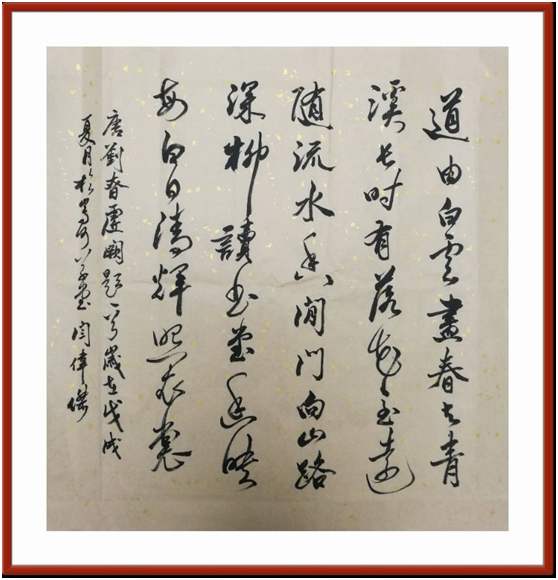 道由白雲盡春与青
溪长时有落花至遠
随流水香閒門向山路
深柳讀书堂幽映
每白日清輝照衣裳
唐劉眘虚闕題一首歲在戊戌
夏月於河草堂 闫偉傑